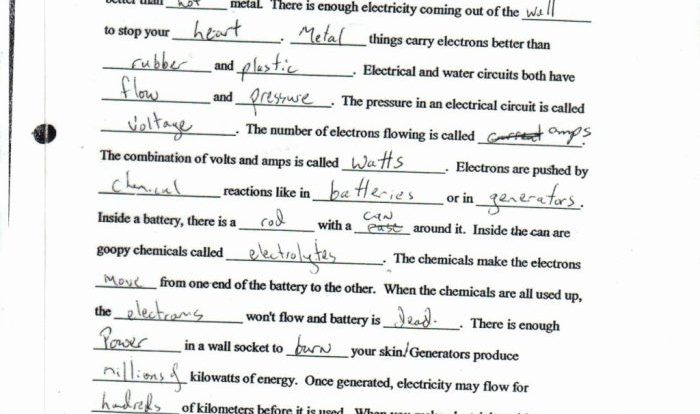 better than hot metal. There is enough electricity coming out of the wall
to stop your heart. Metal things carry electrons better than
rubber and plastic. Electrical and water circuits both have
flow and pressure. The pressure in an electrical circuit is called
voltage. The number of electrons flowing is called current amps.
The combination of volts and amps is called watts. Electrons are pushed by
chemical reactions like in batteries or in generators.
Inside a battery, there is a rod with a past can around it. Inside the can are
goopy chemicals called electrolytes. The chemicals make the electrons
move from one end of the battery to the other. When the chemicals are all used up,
the electrons won't flow and battery is dead. There is enough
Power in a wall socket to burn your skin/Generators produce
millions of kilowatts of energy. Once generated, electricity may flow for
hundreds of kilometers before it is used. When you